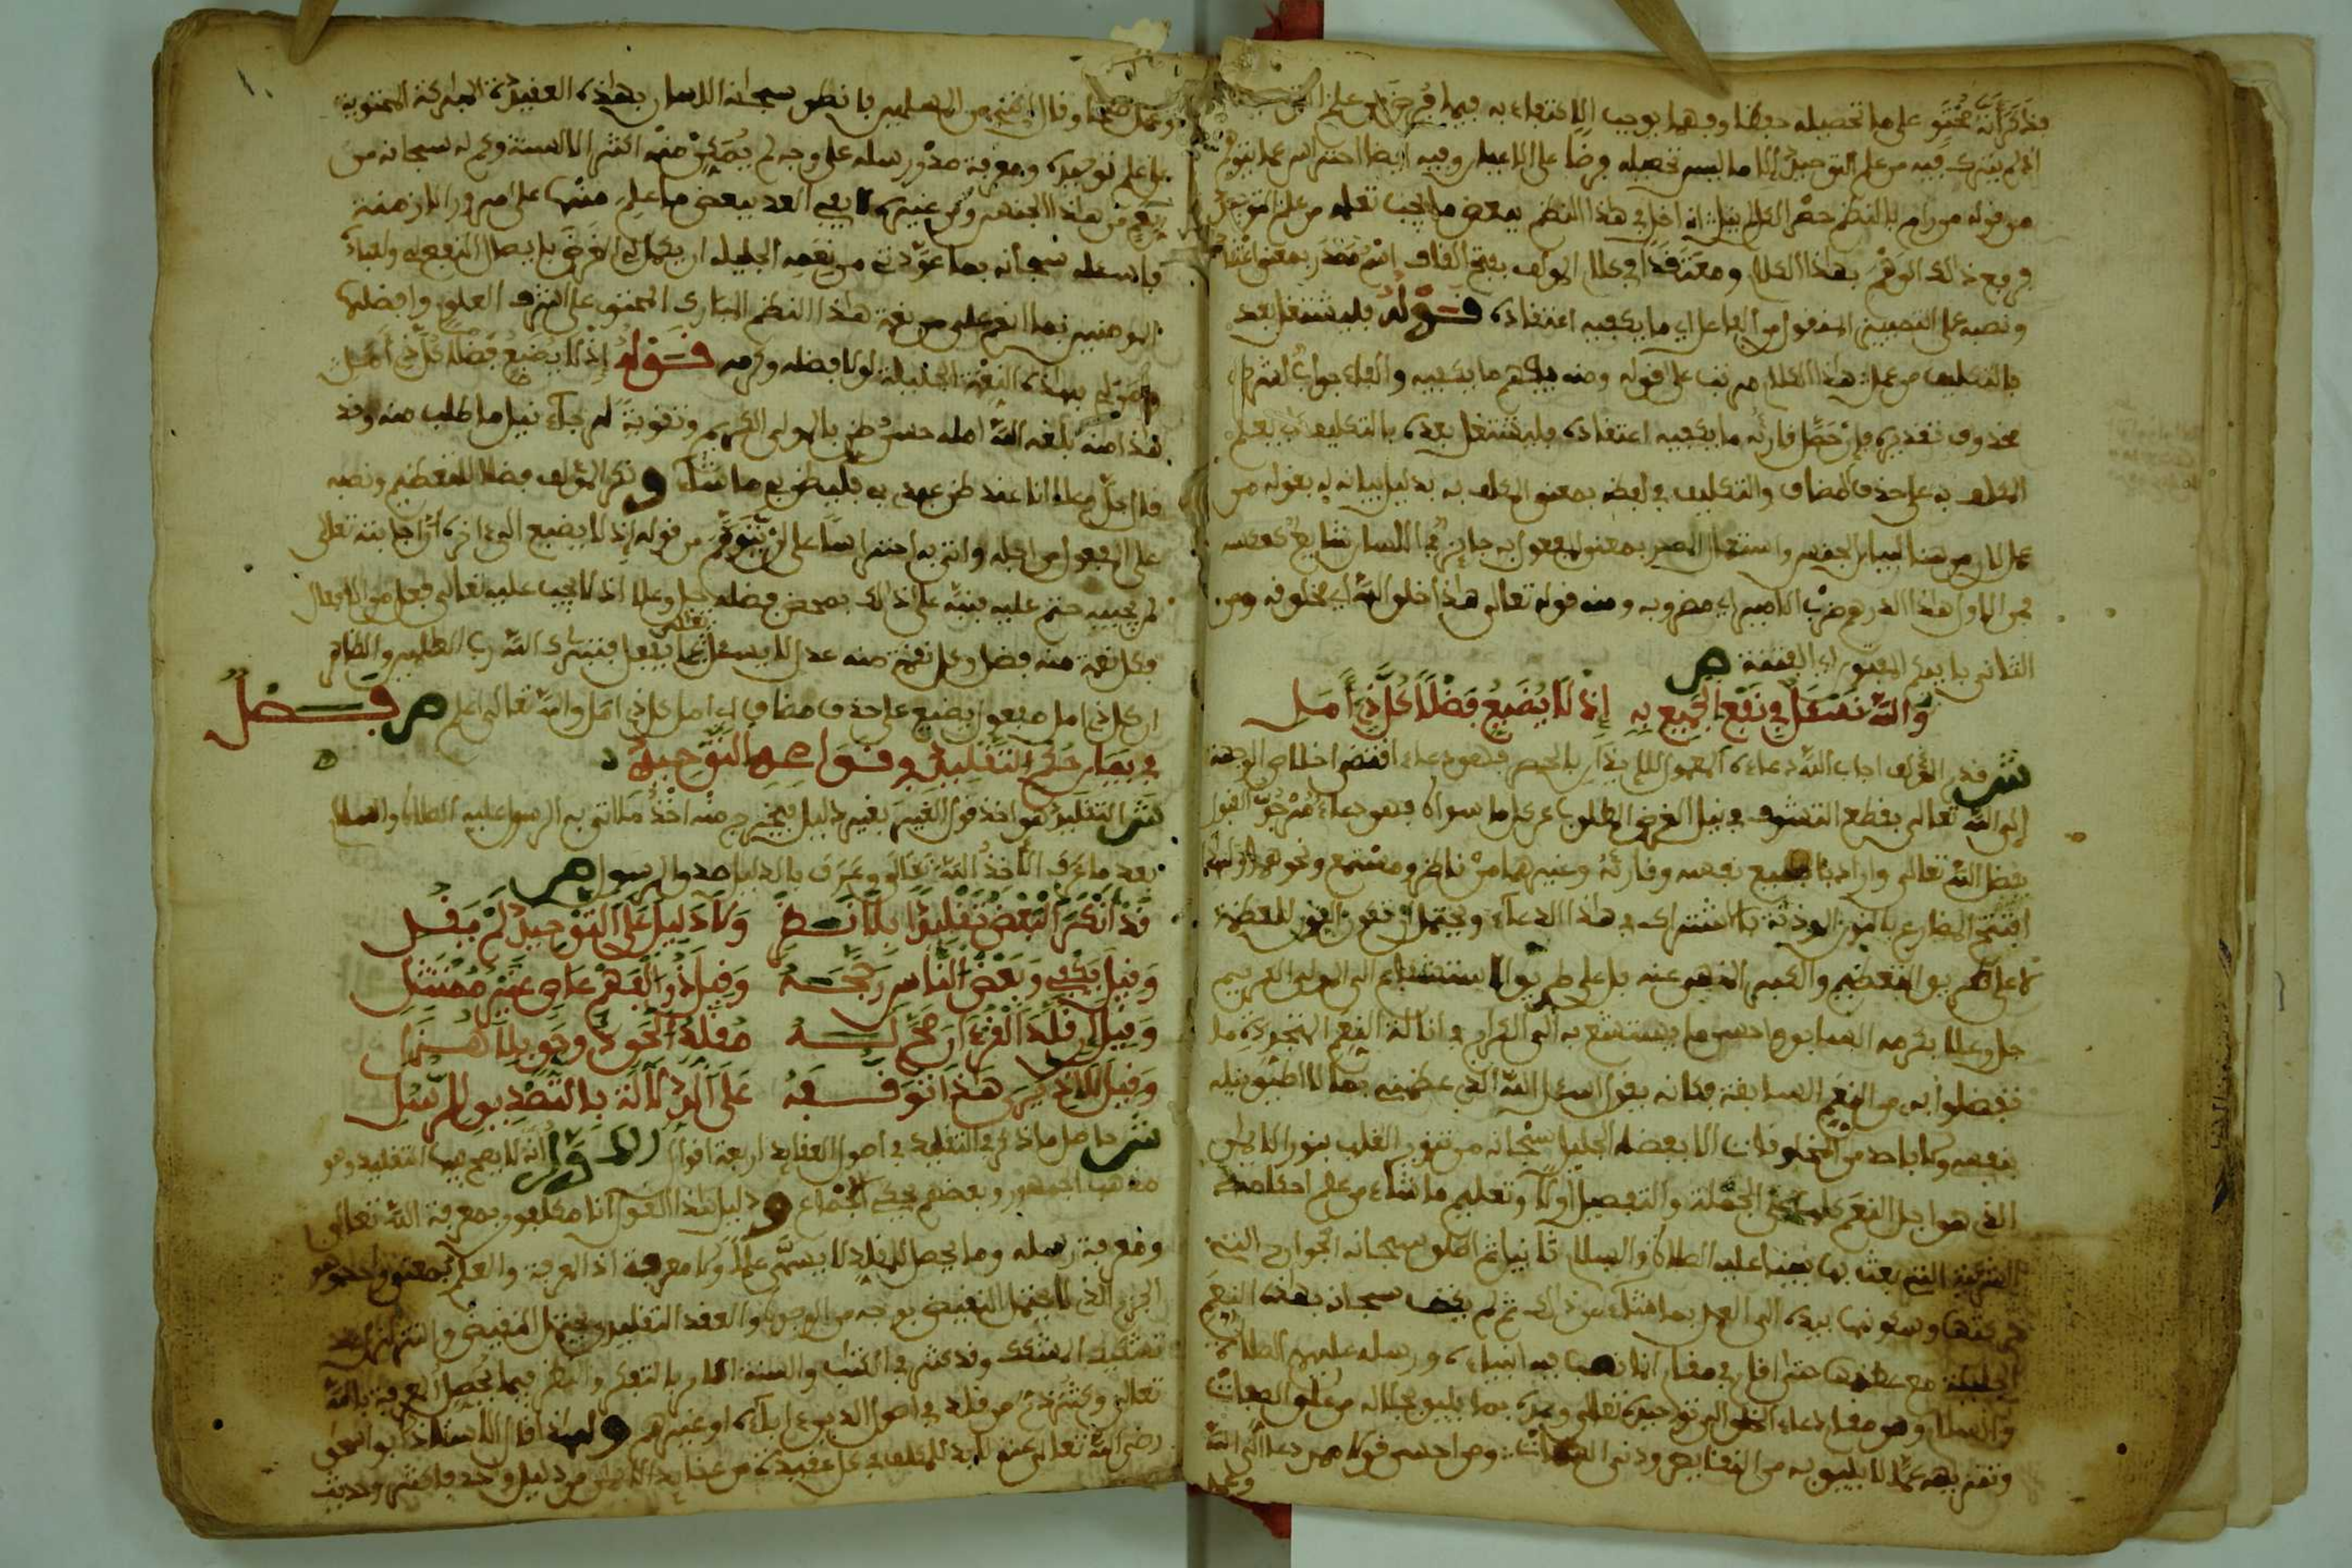 قد ذكر أنه محتو على ما تحصيله حفظا وفهما يوجب الاكتفاء به فيما فرض من علم
إذ لم يترك فيه من علم التوحيد إلا ما ليس تحصيله فرضا على الأعيان وفيه أيضا احتراس عما يتوهم
من قوله من رام بالنظم حصر الكل
فرفع ذلك الوهم بهذا الكلام ومعتقدا في كلام المؤلف بفتح القاف اسم مصدر بمعنى اعتقاد
ونصبه على التمييز المنقول من الفاعل أي ما يكفيه اعتقاده قوله فليشتغل بعد
بالتكليف من عمل هذا الكلام مرتب على قوله ومنه يفهم ما يكفيه والفاء جواب شرط
محذوف تقديره فإن حصل قارئه ما يكفيه اعتقاده فليشتغل بعده بالتكليف أي بعلم
المكلف به على حذف المضاف والتكليف في لفظه بمعنى المكلف به بدليل بيانه له بقوله من
عمل لأن من هنا لبيان الجنس واستعمال المصدر بمعنى المفعول به جائز في اللسان شايع كعكسه
فمن الأول هذا الدرهم ضرب الأمير أي مضروبه ومنه قوله تعالى هذا خلق الله أي مخلوقه ومن
الثاني بأيكم المفتون أي الفتنة ص
والله نسأل في نفع الجميع به إذ لا يضيع فضلا كل ذي أمل
ش قدم المؤلف أجاب الله دعاءه المعمول للإيذان بالحصر فهو دعاء اقتضى إخلاص الوجهة
إلى الله تعالى بقطع التشوف في نيل الغرض المطلوب عن كل ما سواه فهو دعاء مرجو القبول
بفضل الله تعالى وأراد بالجميع نفسه وقارئه وغيرهما من ناظر ومستمع ونحوهما
افتتح المضارع بالنون المؤذنة بالاشتراك في هذا الدعاء ويحتمل أن تكون النون للعظمة
لا على طريق التعظيم والكبر المنهي عنه بل على طريق الاستشفاع إلى المولى الكريم
جل وعلا بكرمه السابق وأحسن ما يستشفع به إلى الكرام في إنالة النعم المتجددة ما
تفضلوا به من النعم السابقة فكأنه يقول أسأل الله الذي عظمني بما لا أطيق نيله
بنفسي ولا بأحد من المخلوقات إلا بفضله الجليل سبحانه من تنوير القلب بنور الإيمان
الذي هو أجل النعم كلها على الجملة والتفصيل أولا وتعليم ما شاء من علم أحكامه
الشرعية التي بعث بها نبينا عليه الصلاة والسلام ثانيا ثم أطلق سبحانه الجوارح التي
حركتها وسكونها بيده إلى العمل بما امتثل من ذلك ثم لم يكتف سبحانه بهذه النعم
الجليلة مع عظمها حتى أقامني مقاما أقام فيه أنبياءه ورسله عليهم الصلاة
والسلام وهو مقام دعاء الخلق إلى توحيده تعالى وعبده بما يليق بجلاله من علو الصفات
وتنزيهه عما لا يليق به من النقائص ودني السمات ومن أحسن قولا ممن دعا إلى الله
وعمل
وعمل صالحا وقال إنني من المسلمين فأنطق سبحانه اللسان بهذه العقيدة المباركة المحتوية
على علم توحيده ومعرفة صدق رسله على وجه لم يتمكن منه أكثر الألسنة وكم له سبحانه من
نعم في هذا الجنس ومن غيره لا يفي العد ببعض ما علم منها على مرور الأزمنة
فأسأله سبحانه بما عودني من نعمه الجليلة أن يكمل لي الغرض بإيصال النفع لي ولقباء
المؤمنين بما أنعم علي من نعمة هذا النظم المبارك المحتوي على أشرف العلوم وأفضلها
بهذه النعمة الجليلة لولا فضله وكرمه قوله إذ لا يضيع فضلا كل ذي أمل
هذا منه بلغه الله أمله حسن ظن بالمولى الكريم وتقوية لرجاء نيل ما طلب منه وقد
قال جل وعلا أنا عند ظن عبدي بي فليظن بي ما شاء ونكر المؤلف فضلا للتعظيم ونصبه
على المفعول من أجله وأتى به احتراسا على أن يتوهم من قوله إذ لا يضيع إلى آخره أن إجابته تعالى
لم يجبه حتم عليه فنبه على أن ذلك بمحض فضله جل وعلا إذ لا يجب عليه تعالى فعل من الأفعال
فكل نعمة منه فضل وكل نقمة منه عدل لا يسأل تعالى عما يفعل فتبارك الله رب العالمين والظاهر
أن كل ذي أمل مفعول يضيع على حذف مضاف أي أمل كل ذي أمل والله تعالى أعلم ص فصل
في بيان حكم التقليد في قواعد التوحيد
ش التقليد هو أخذ قول الغير بغير دليل فيخرج منه أخذ ما أتى به الرسول عليه الصلاة والسلام
بعد ما عرف الآخذ الله تعالى وعرف بالدليل صدق الرسول ص
قد أنكر البعض تقليدا بلا نظر ولا دليل على التوحيد لم يفل
وقيل يكفي وبعض الناس رجحه وقيل ذو الفهم عاص غير ممتثل
وقيل إن قلد القرآن صح له مقلد الحق ذو حق بلا هزل
وقيل لا إذ يرى هذا توقفه على الدلالة بالتصديق للرسل
ش حاصل ما ذكر في التقليد في أصول العقائد أربعة أقوال الأول أنه لا يصح فيها التقليد وهو
مذهب الجمهور وبعضهم يحكي الإجماع ودليل هذا القول أنا مكلفون بمعرفة الله تعالى
ومعرفة رسله وما يحصل للمقلد لا يسمى علما ولا معرفة إذ المعرفة والعلم بمعنى واحد وهو
الجزم الذي لا يحتمل النقيض بوجه من الوجوه والعقد التقليدي يحتمل النقيض والتزلزل عند
تشكيك المشكك وقد كثر في الكتاب والسنة الأمر بالتفكر والنظر فيما يحصل المعرفة بالله
تعالى وكثر ذم من قلد في أصول الدين آباءه أو غيرهم ولهذا قال الأستاذ أبو إسحاق
رضي الله تعالى عنه لا بد للمكلف في كل عقيدة من عقايد الإيمان من دليل واحد فأكثر وحديث